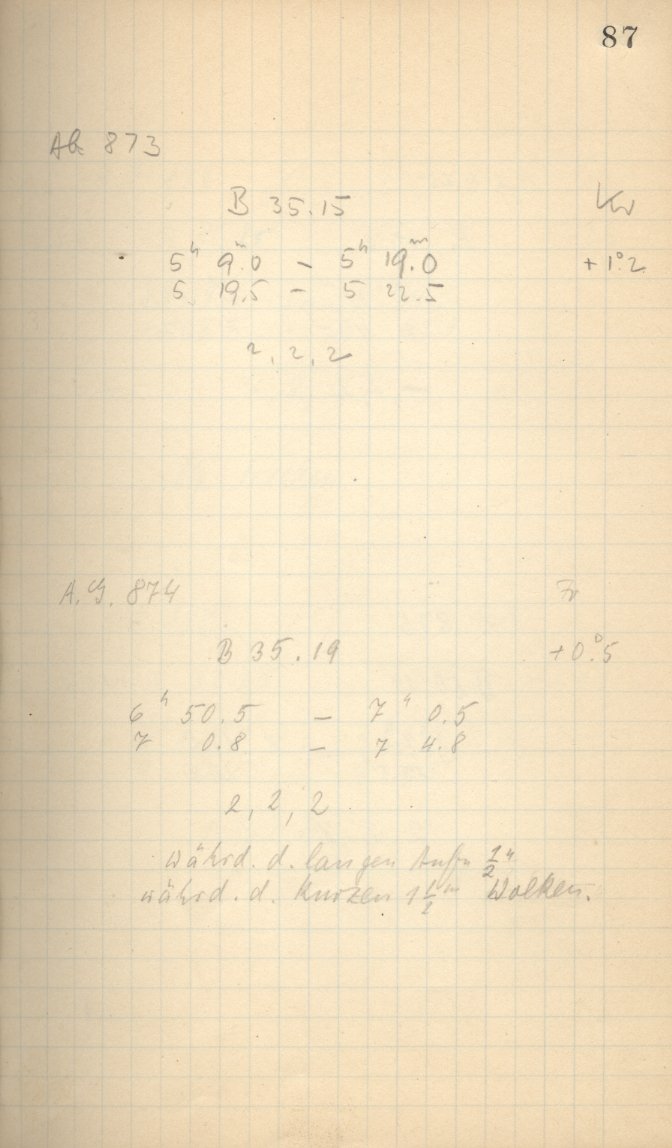 87
AG 873
B 35.15 Kr
5ʰ 9ᵐ.0 – 5ʰ 19ᵐ.0 +1°.2
5 19.5 – 5 22.5
2, 2, 2
A.G. 874 Fr
B 35.19 +0°.5
6ʰ 50.5 – 7ʰ 0.5
7 0.8 – 7 4.8
2, 2, 2
währd. d. langen Aufn ½
währd. d. kurzen 1½ᵐ Wolken.